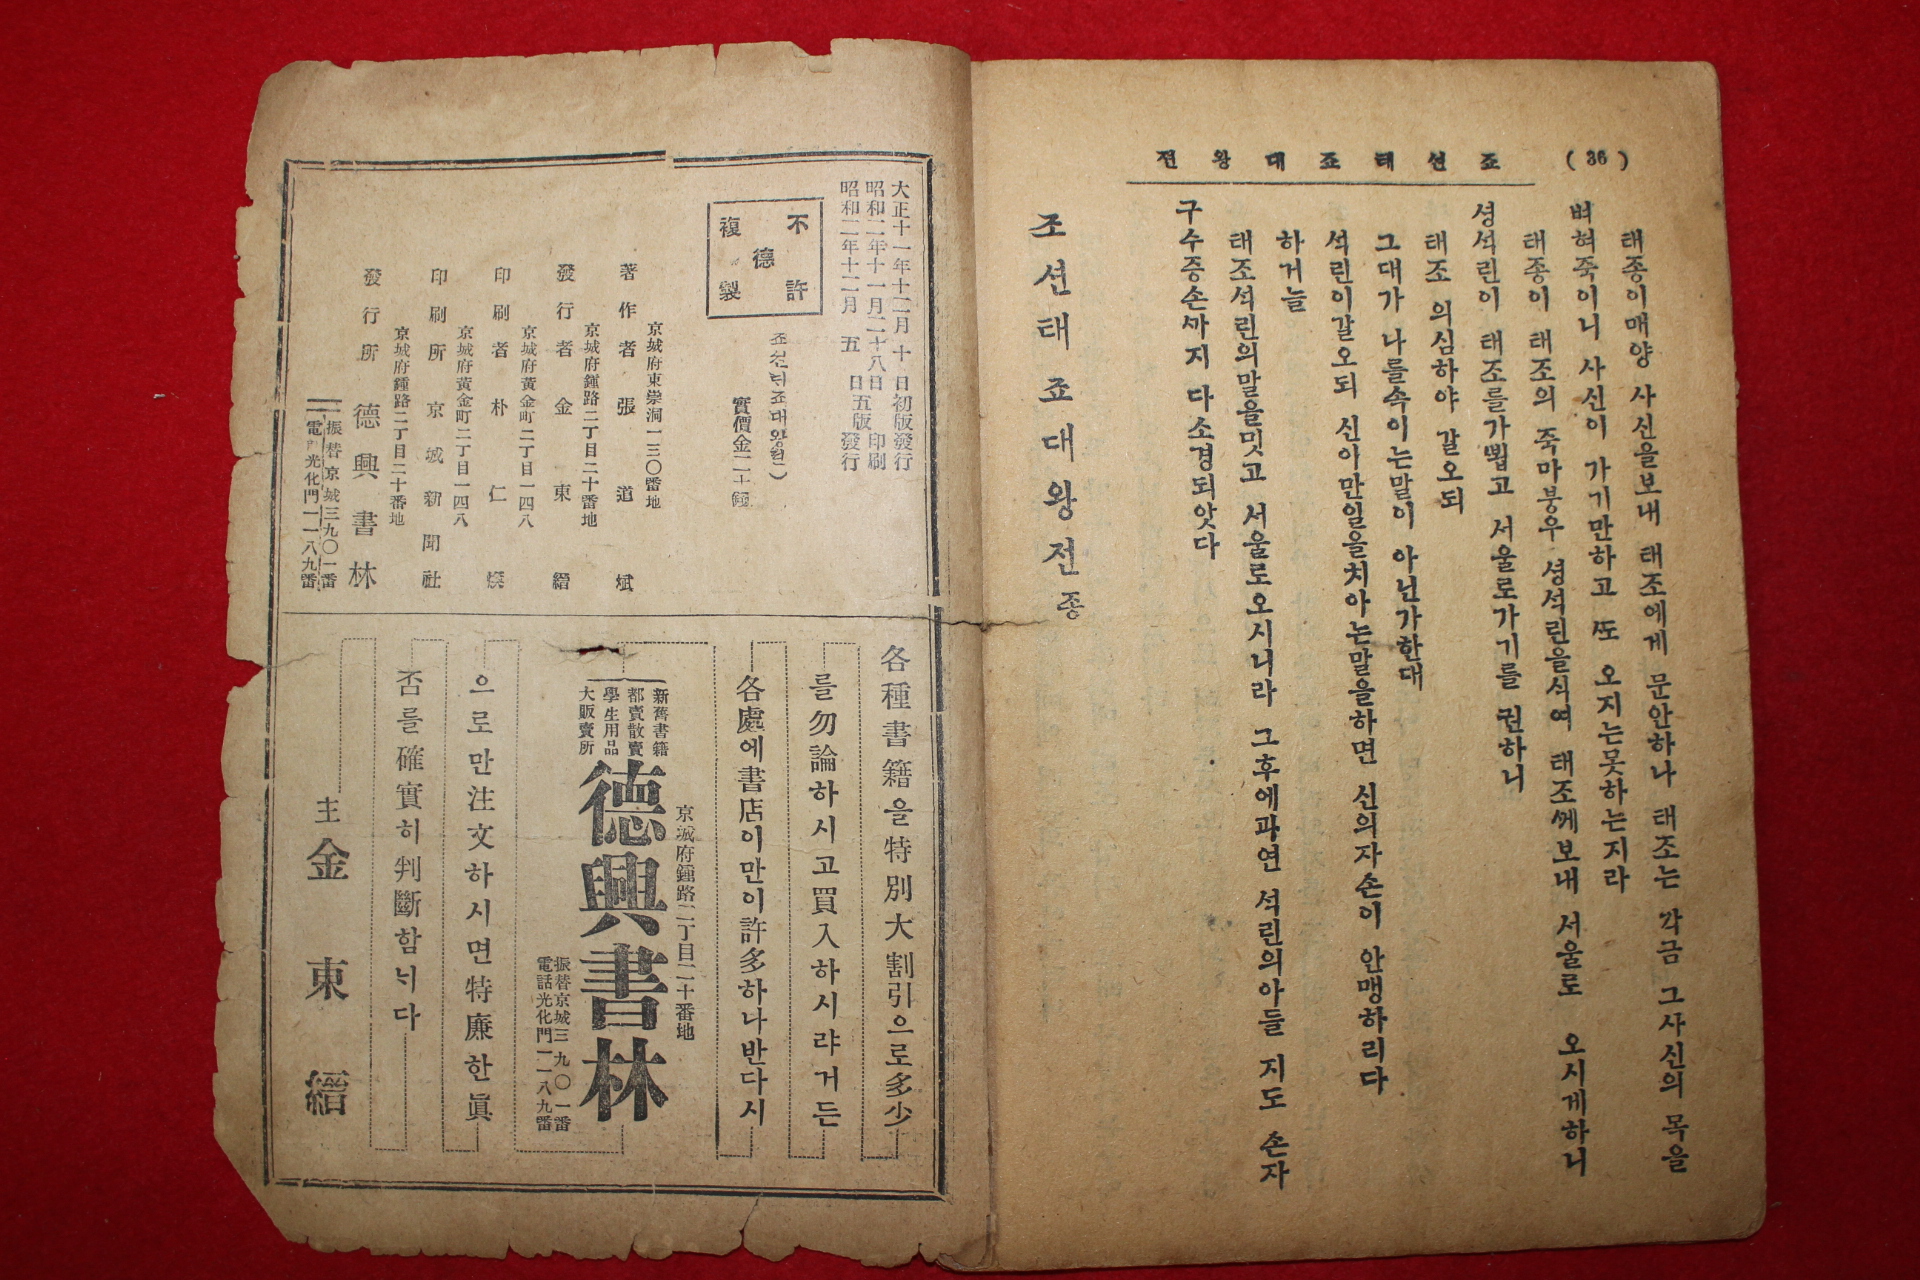 (36) 조선태조대왕전
태종이매양 사신을보내 태조에게 문안하나 태조는 각금 그사신의 목을
벼혀죽이니 사신이 가기만하고 ᄯᅩ 오지는못하는지라
태종이 태조의 죽마붕우 셩석린을식여 태조ᄭᅦ보내 서울로 오시게하니
셩석린이 태조를가뵙고 서울로가기를 권하니
태조 의심하야 갈오되
그대가 나를속이는말이 아닌가한대
석린이갈오되 신이만일을치아는말을하면 신의자손이 안맹하리다
하거늘
태조석린의말을밋고 서울로오시니라 그후에과연 석린의아들 지도 손자
구수증손ᄭᅡ지 다소경되앗다
조선태조대왕전종
大正十一年十二月十日初版發行
昭和二年十一月二十八日五版印刷
昭和二年十二月五日五版發行
不許
德
複製
조선태조대왕전
實價金二十錢
京城府東崇洞一三〇番地
著作者 張道斌
京城府鍾路二丁目二十番地
發行者 金東縉
京城府黃金町二丁目一四八
印刷者 朴仁煥
京城府黃金町二丁目一四八
印刷所 京城新聞社
京城府鍾路二丁目二十番地
發行所 德興書林
振替京城三九〇一番
電 光化門一一八九番
各種書籍을特別大割引으로多少
를勿論하시고買入하시랴거든
各處에書店이만이許多하나반다시
京城府鍾路二丁目二十番地
新舊書籍
都賣散賣
學生用品
大販賣所
德興書林
振替京城三九〇一番
電話光化門一一八九番
으로만注文하시면特廉한眞
否를確實히判斷함늬다
主 金東縉